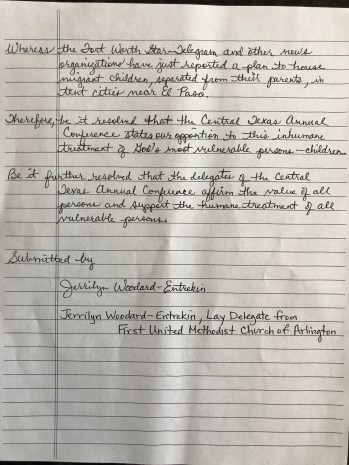 Whereas the Fort Worth Star-Telegram and other news
organizations have just reported a plan to house
migrant children, separated from their parents, in
tent cities near El Paso.
Therefore, be it resolved that the Central Texas Annual
Conference states our oppontion to this inhumane
treatment of God's most vulnerable persons—children
Be it further resolved that the delegates of the Central
Texas Annual Confluence affirm the value of all
persons and support the humane treatment of all
vulnerable persons.
Submitted by
Jerrilyn Woodard-Entrekin
Jerrilyn Woodard-Entrekin, Lay Delegate from
First United Methodist Church of Arlington